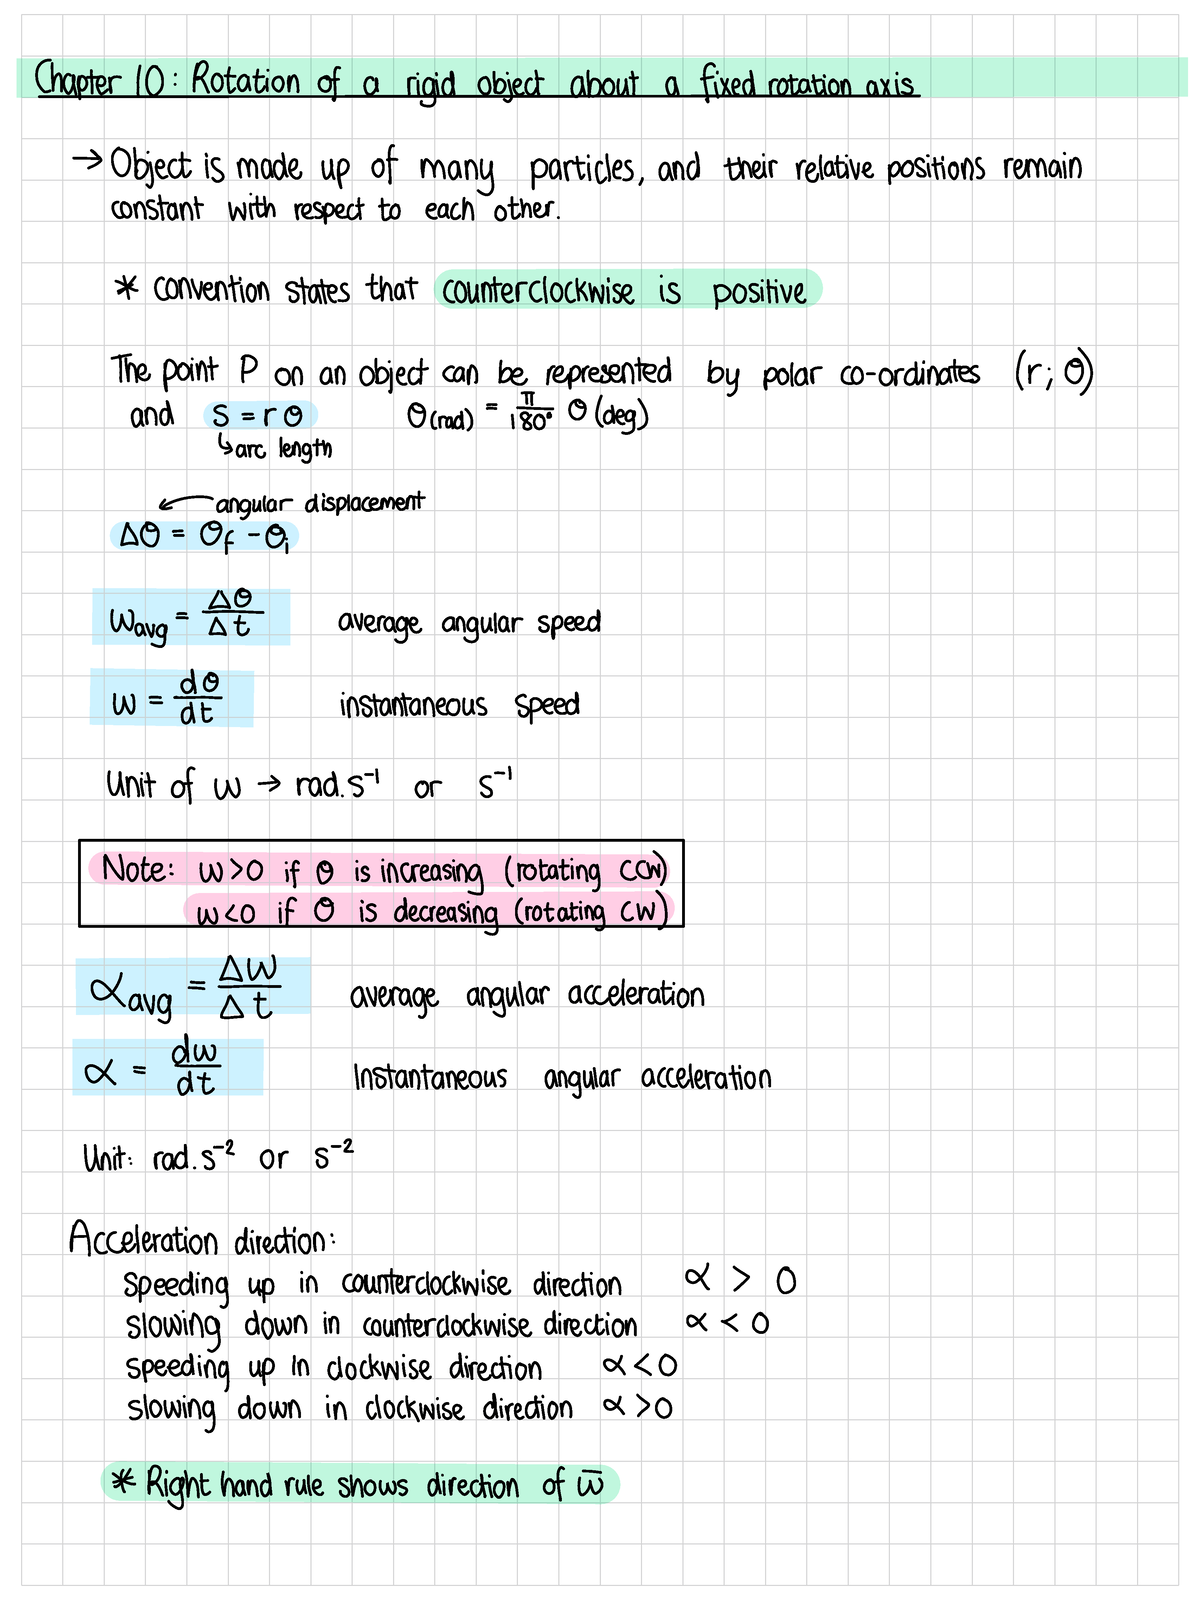 Chapter 10: Rotation of a rigid object about a fixed rotation axis
→ Object is made up of many particles, and their relative positions remain
constant with respect to each other.
* convention states that counterclockwise is positive
The point P on an object can be represented by polar co-ordinates (r; θ)
and s = rθ θ(rad) = π/180° θ(deg)
↳ arc length
angular displacement
Δθ = θf - θi
ωavg = Δθ/Δt average angular speed
ω = dθ/dt instantaneous speed
Unit of ω → rad.s⁻¹ or s⁻¹
Note: ω>0 if θ is increasing (rotating CCW)
ω<0 if θ is decreasing (rotating CW)
αavg = Δω/Δt average angular acceleration
α = dω/dt Instantaneous angular acceleration
Unit: rad.s⁻² or s⁻²
Acceleration direction:
speeding up in counterclockwise direction α > 0
slowing down in counterclockwise direction α < 0
speeding up in clockwise direction α<0
slowing down in clockwise direction α >0
* Right hand rule shows direction of ω̅